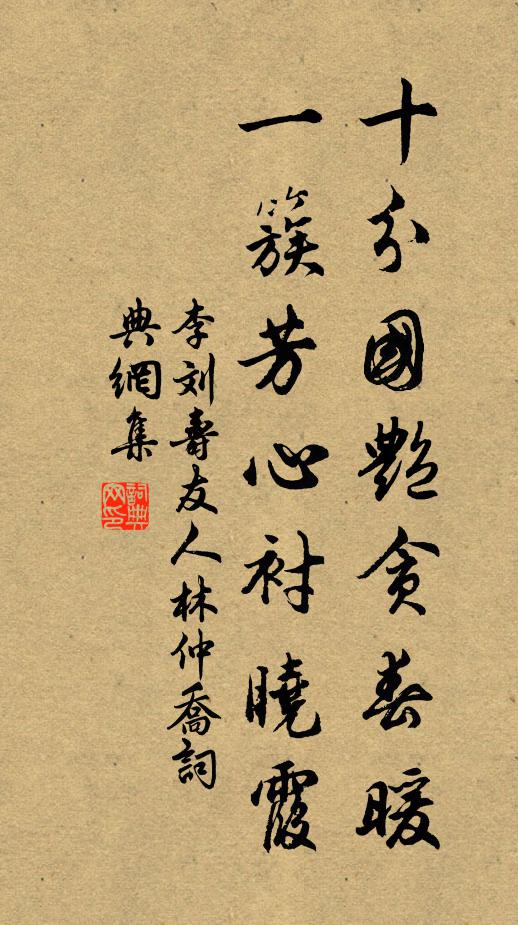 十分國艷貪春暖
一簇芳心衬曉霞
李刘壽友人林仲喬詞
典網集
詞典網印